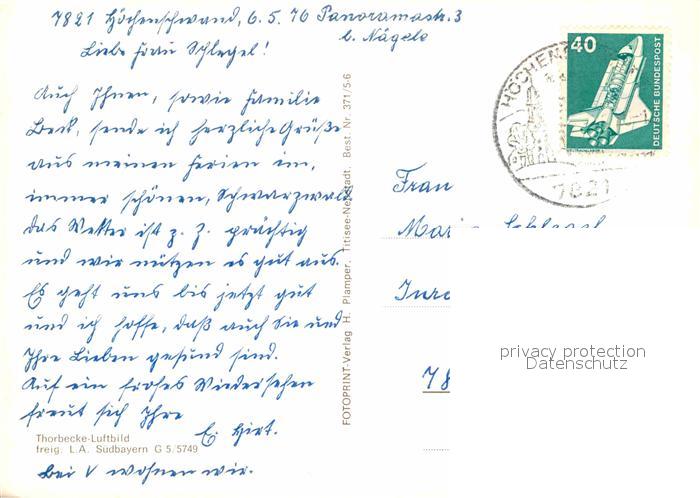 7821 Höchenschwand, 6.5.76 Panoramastr. 3
b. Nägele
Liebe Frau Schlegel!
Auch Ihnen, sowie Familie
Beck, sende ich herzliche Grüße
aus meinen Ferien im,
immer schönen, Schwarzwald
das Wetter ist z. Z. prächtig
und wir nützen es gut aus.
Es geht uns bis jetzt gut
und ich hoffe, daß auch Sie und
Ihre Lieben gesund sind.
Auf ein frohes Wiedersehen
freut sich Ihre
E. Hirt.
bei V wohnen wir.
Thorbecke-Luftbild
freig. L.A. Südbayern G 5/5749
FOTOPRINT-Verlag H. Plamper, Titisee-Neustadt, Best. Nr. 371/5-6
40
DEUTSCHE BUNDESPOST
HÖCHENS
7821
Frau
78
privacy protection
Datenschutz